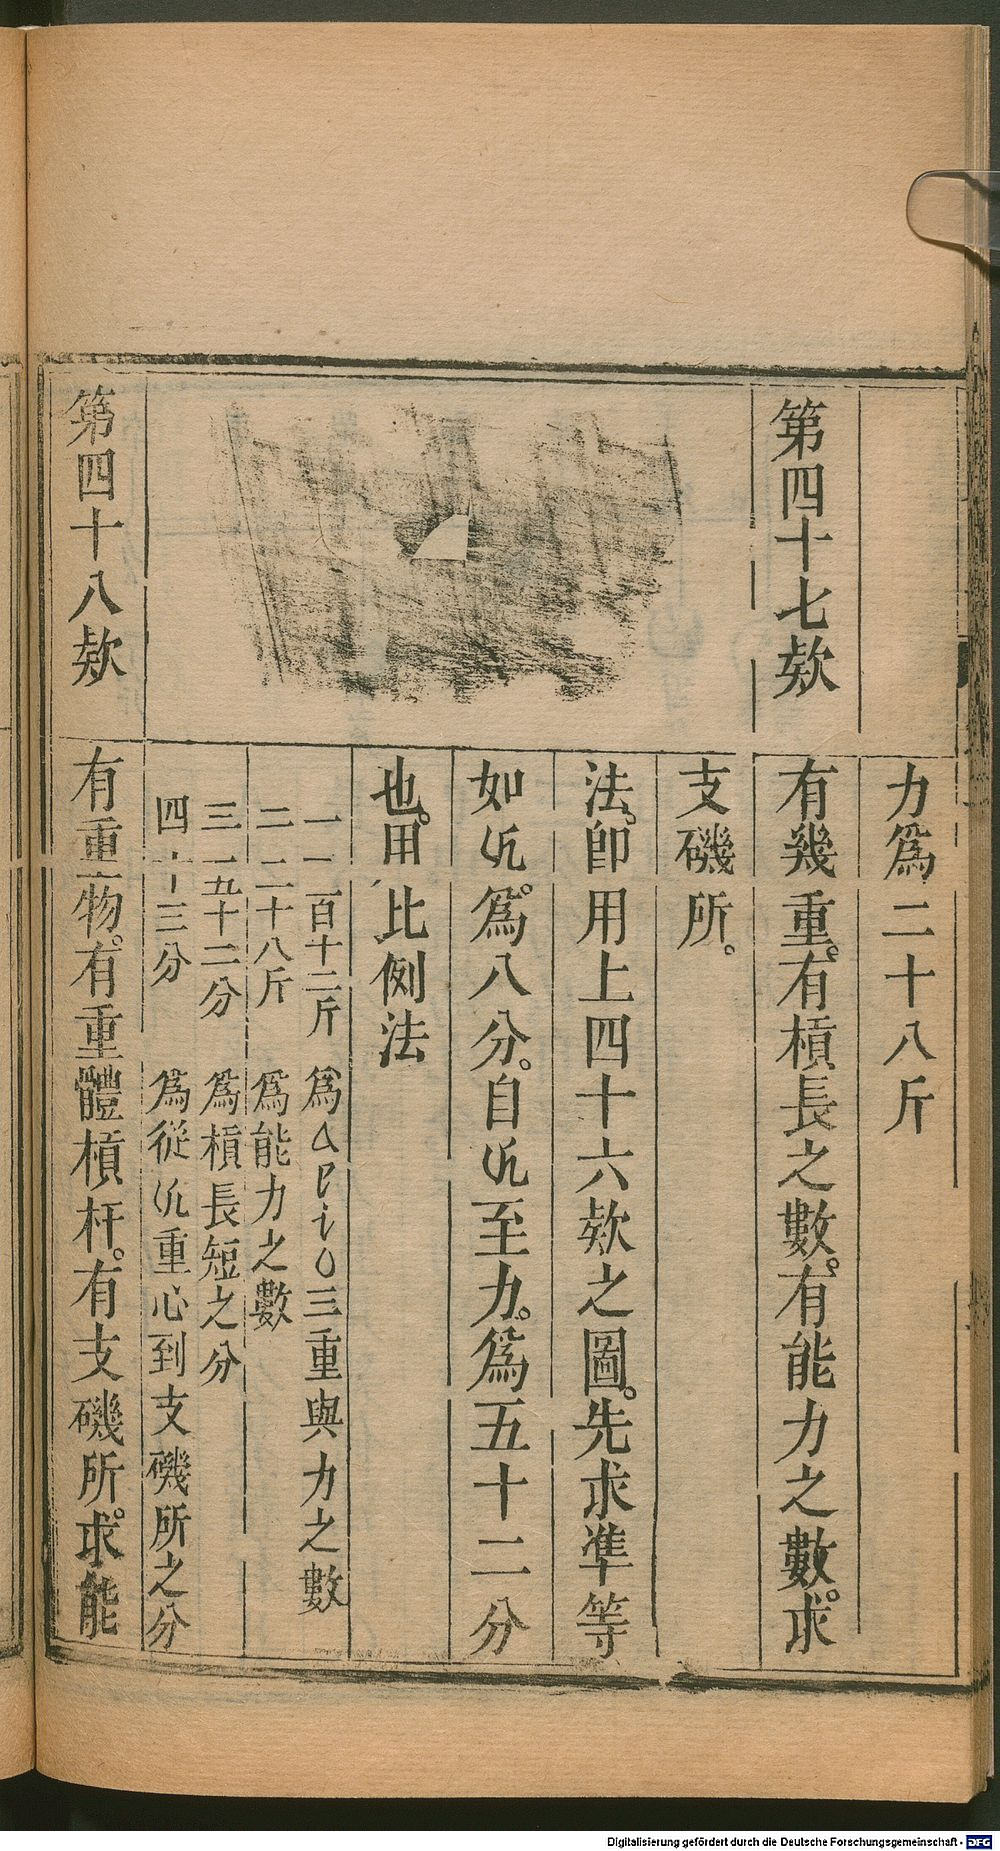 力爲二十八斤
第四十七欵
有幾重。有槓長之數。有能力之數。求
支磯所。
法。卽用上四十六欵之圖。先求準等
如氿。爲八分。自氿至力。爲五十二分
也。用比例法
一 一百十二斤 爲a e i o三重與力之數
二 二十八斤 爲能力之數
三 五十二分 爲槓長短之分
四 十三分 爲從氿重心到支磯所之分
第四十八欵
有重物。有重體槓杆。有支磯所。求能
Digitalisierung gefördert durch die Deutsche Forschungsgemeinschaft - DFG